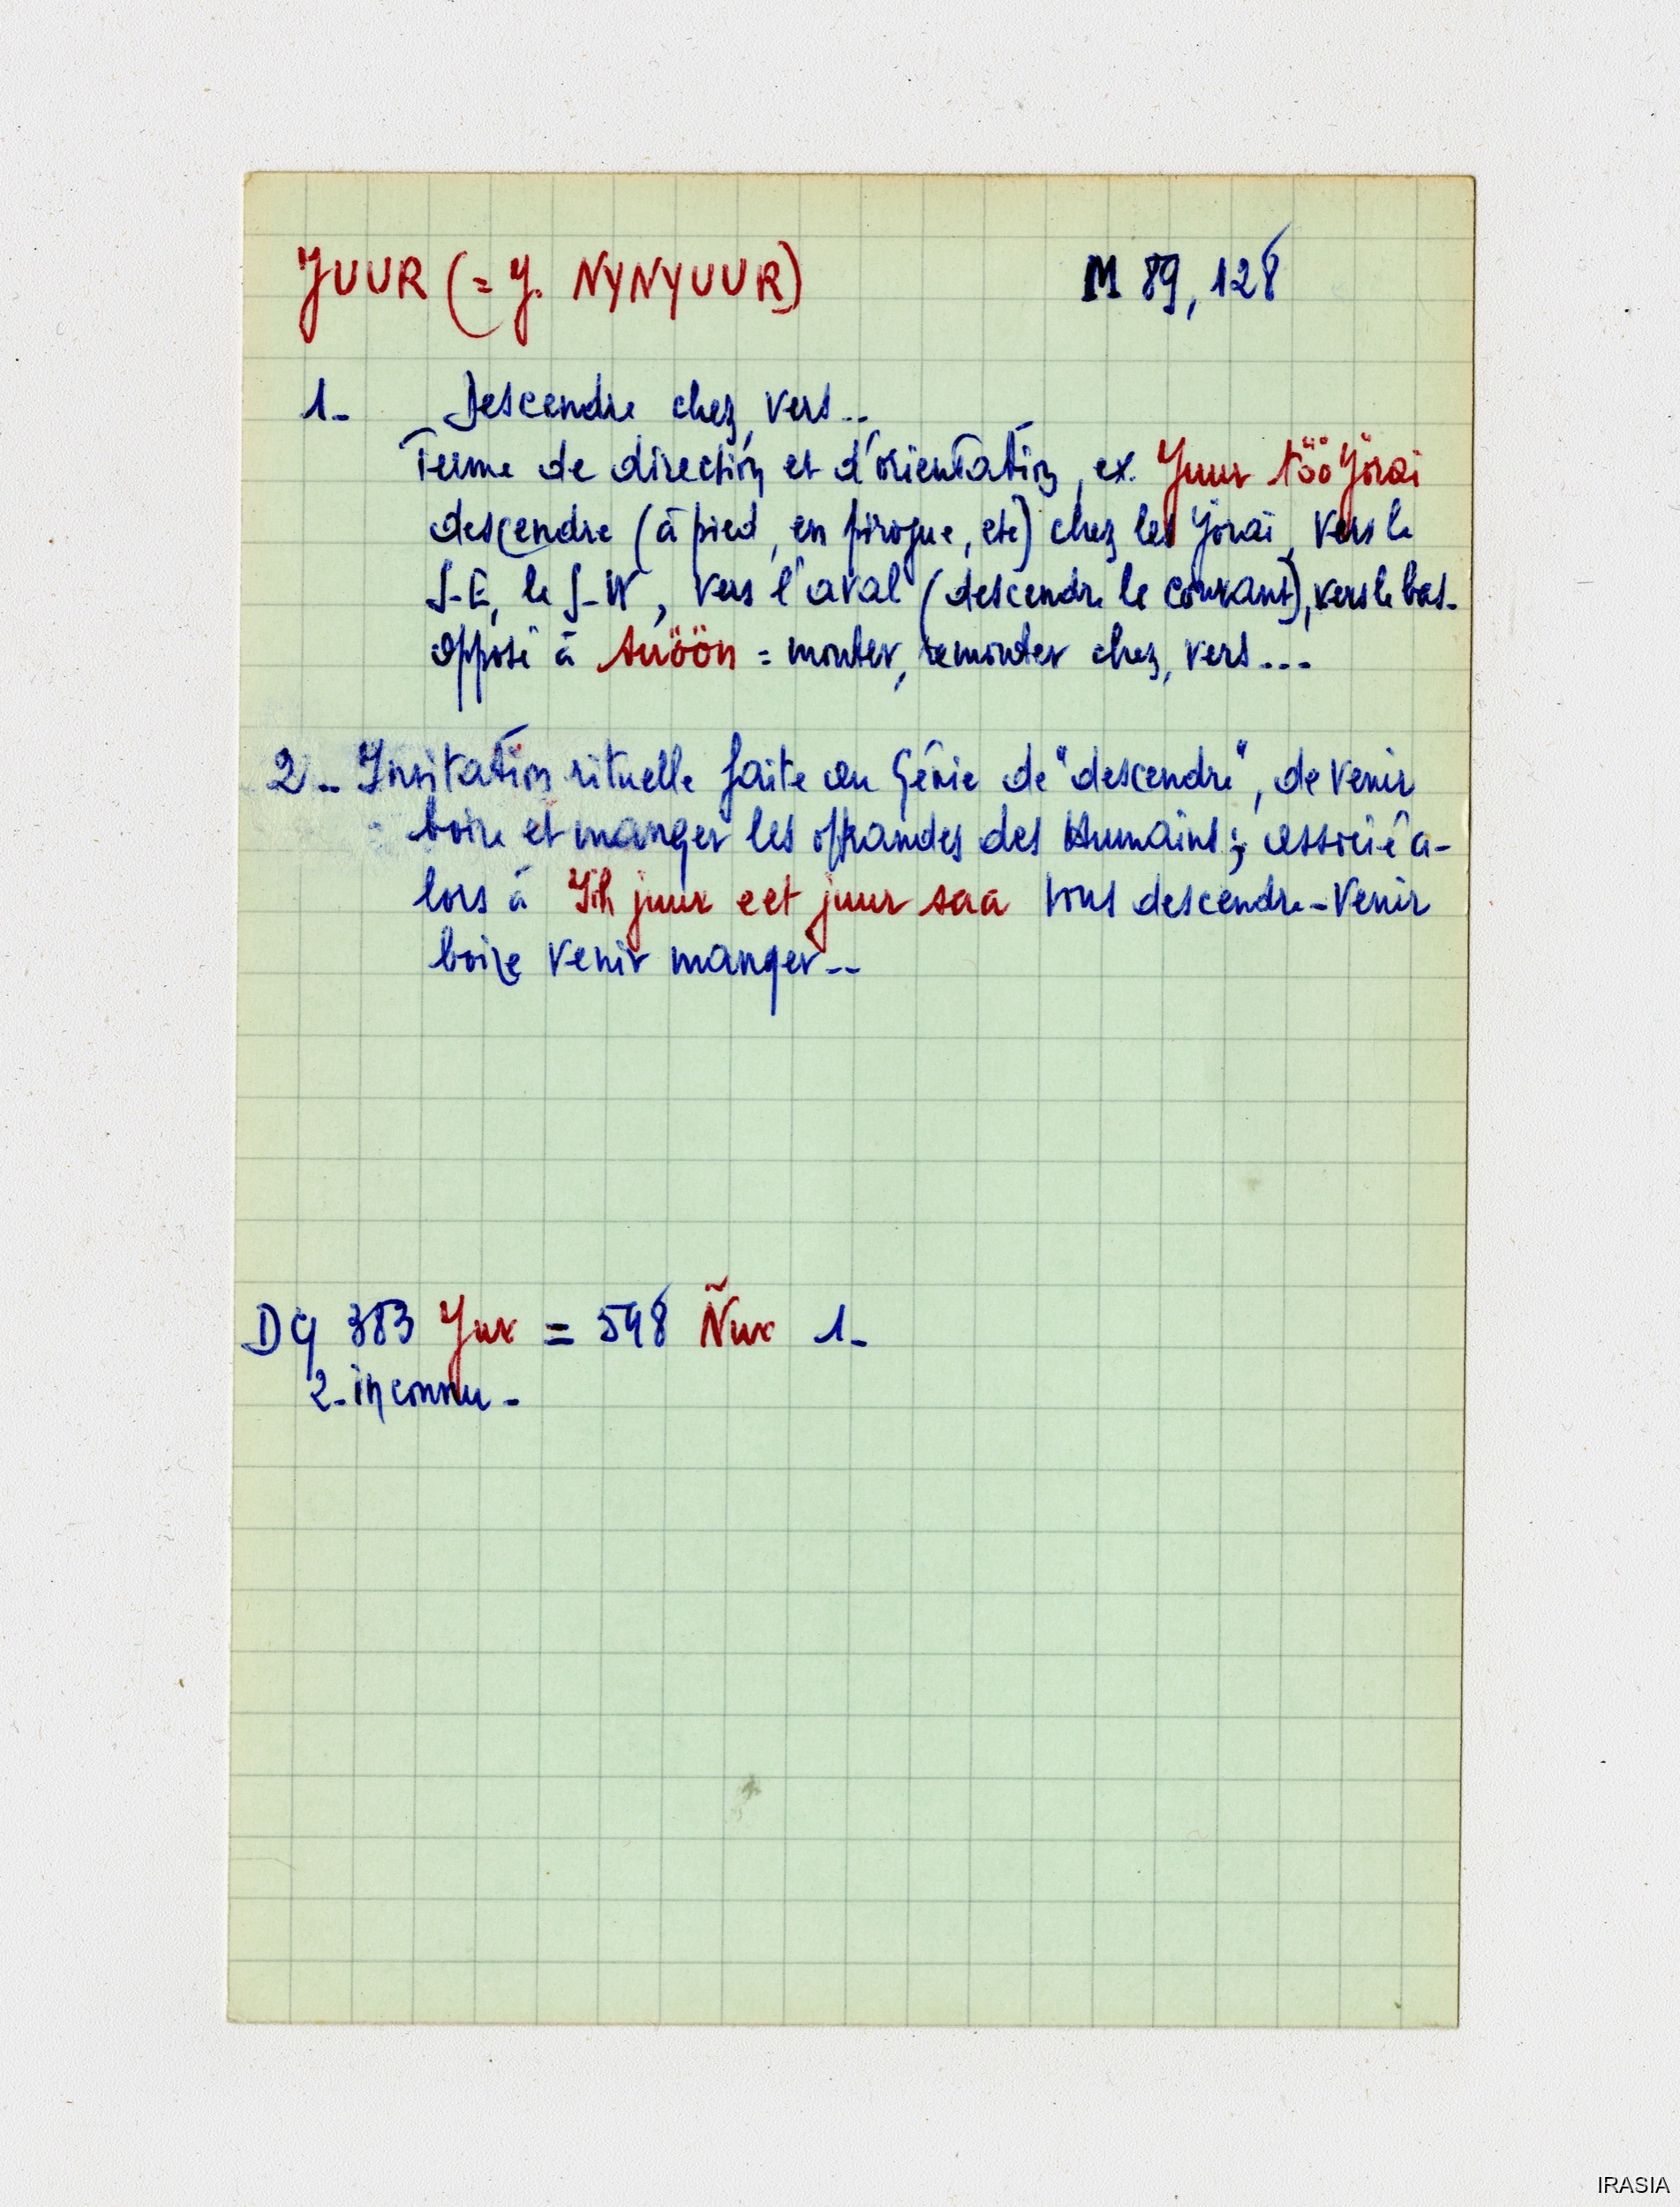 JUUR (= J. NYNYUUR) M 89, 128
1- Descendre chez, vers..
Terme de direction et d'orientation, ex. Juur töö Jörai
descendre (à pied, en pirogue, etc) chez les Jörai, vers le
S-E, le S-W, vers l'aval (descendre le courant), vers le bas.
Opposé à = monter, remonter chez, vers...
2.. Invitation rituelle faite au Génie de "descendre", de venir
boire et manger les offrandes des Humains ; associé a-
lors à Jih juur eet juur saa vous descendre-venir
boire venir manger--
DG 383 Jur = 548 Ñur 1-
2- inconnu -
IRASIA